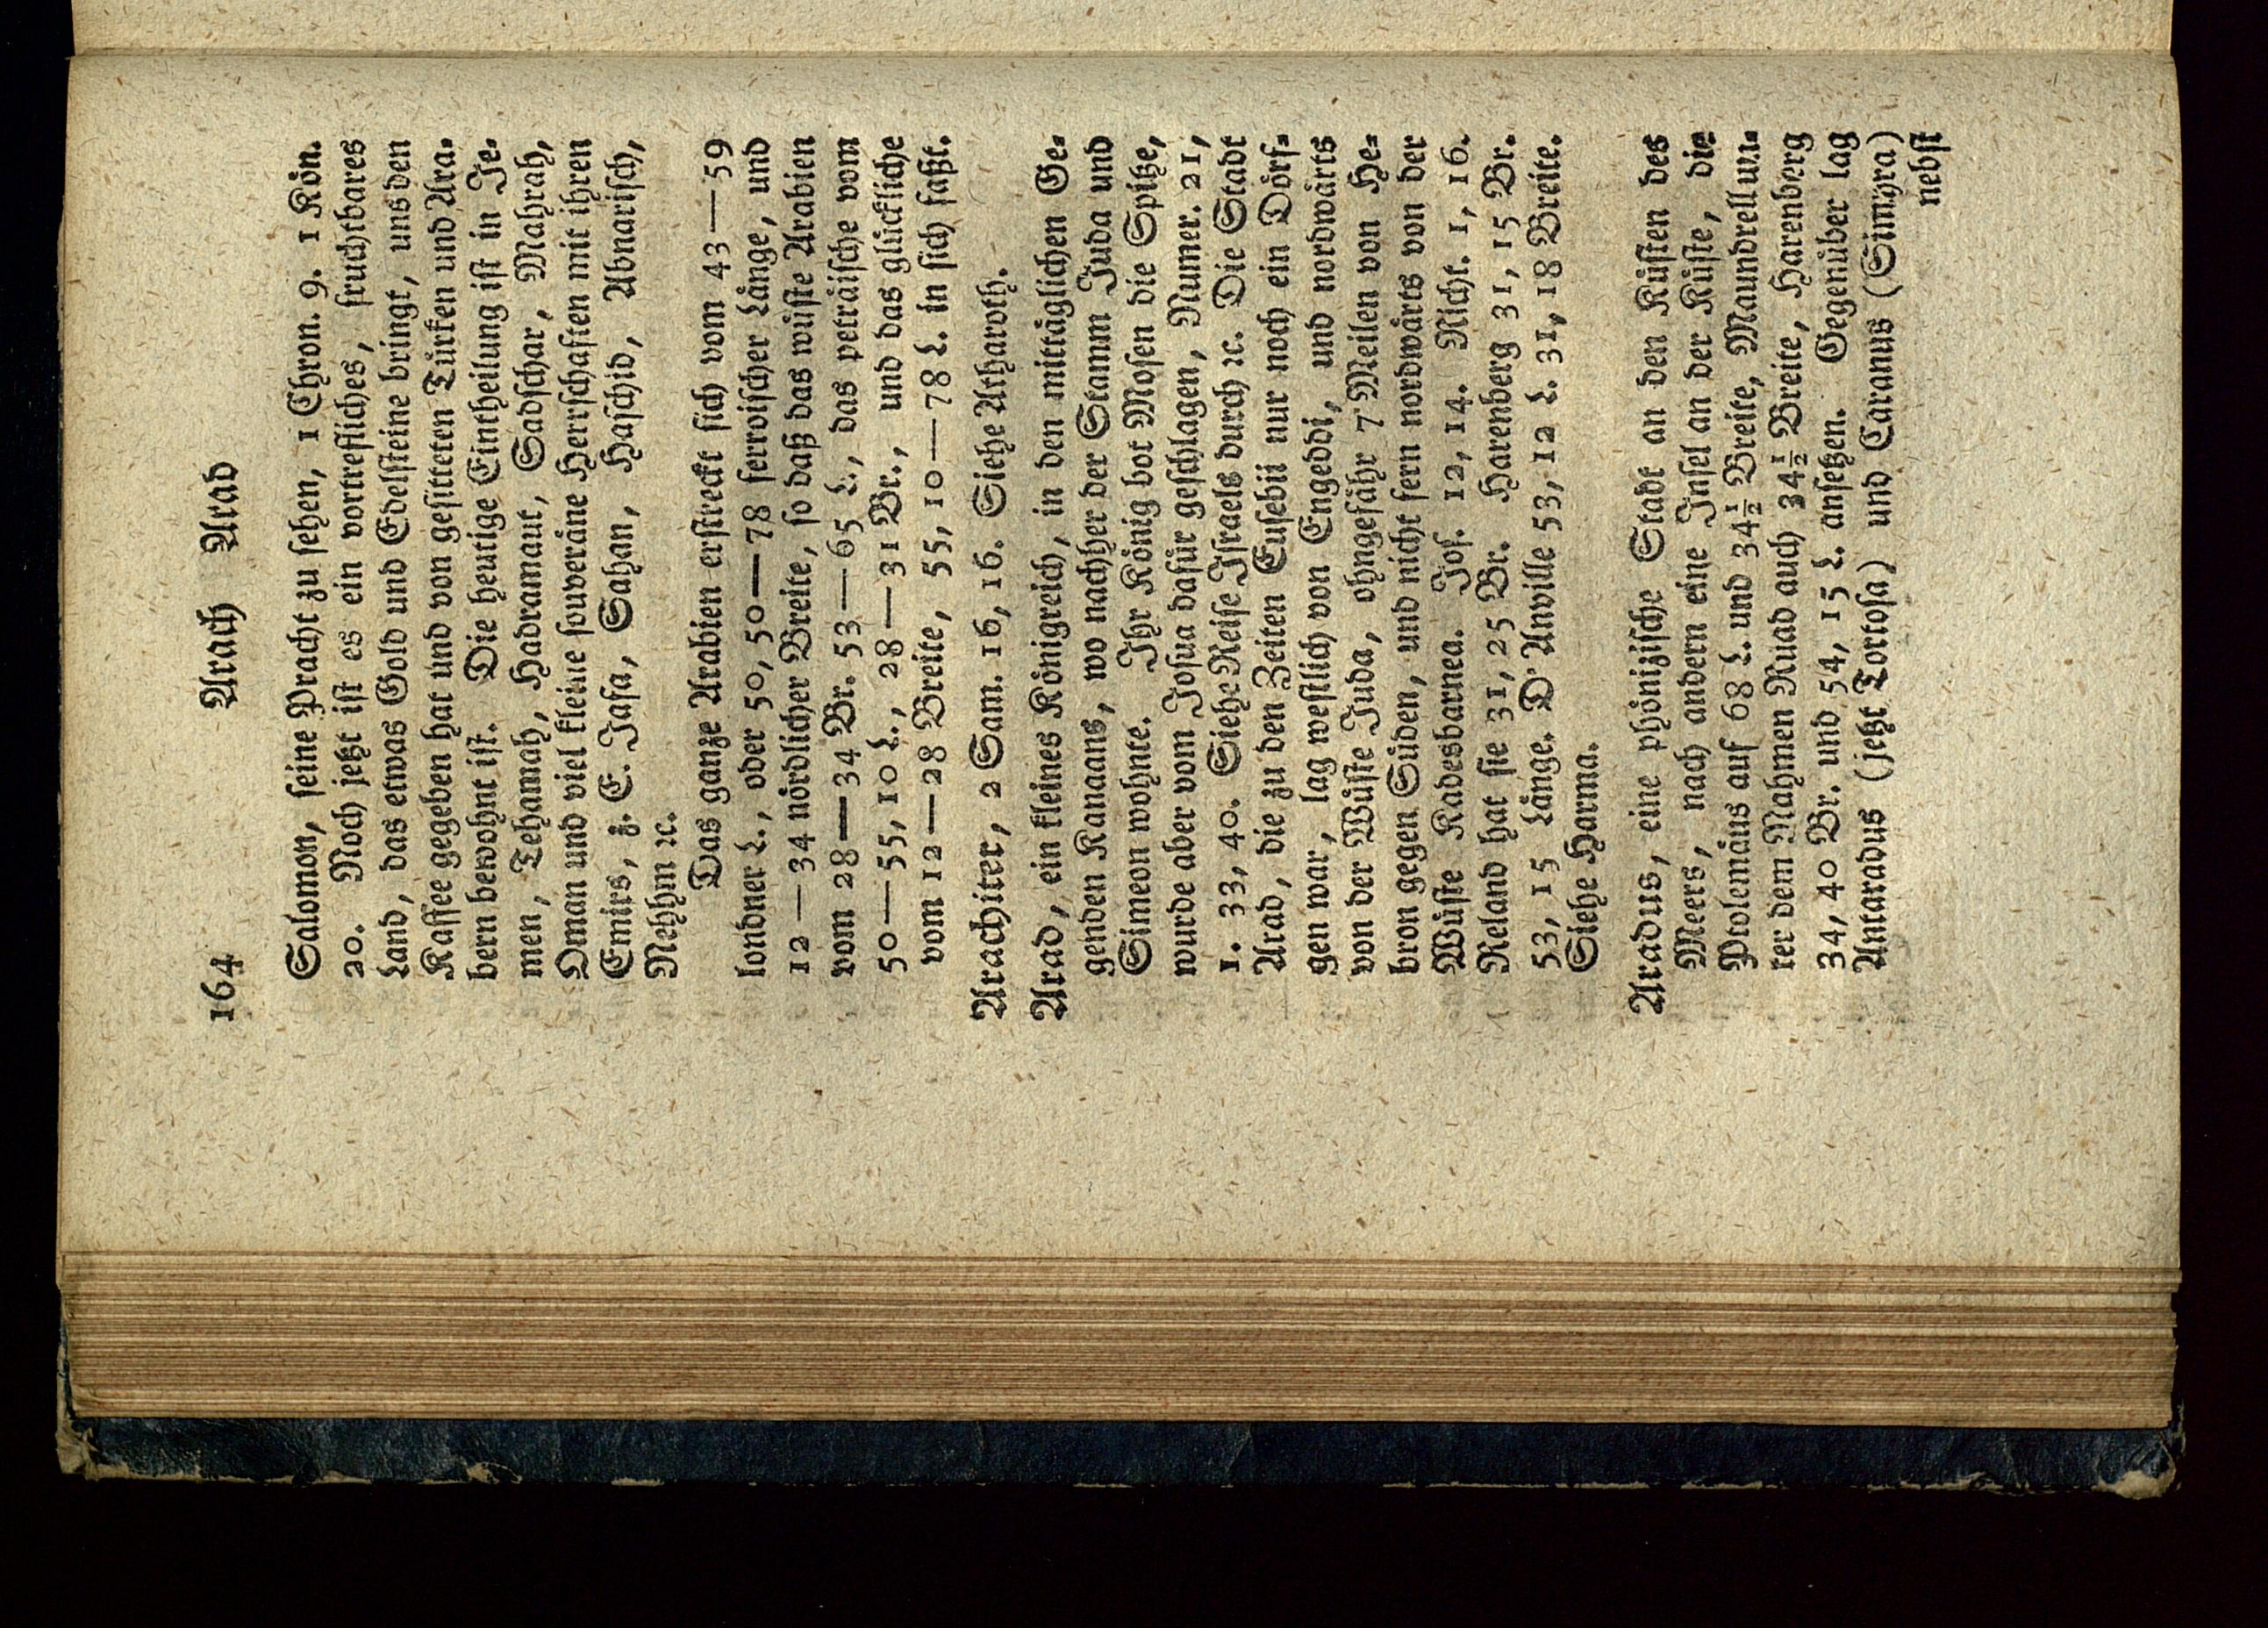 164 Arach Arad
Salomon, seine Pracht zu sehen, 1 Chron. 9. 1 Kön.
20. Noch jetzt ist es ein vortrefliches, fruchtbares
Land, das etwas Gold und Edelsteine bringt, uns den
Kaffee gegeben hat und von gesitteten Türken und Ara-
bern bewohnt ist. Die heutige Eintheilung ist in Je-
men, Tehamah, Hadramaut, Sadschar, Mahrah,
Oman und viel kleine souveräne Herrschaften mit ihren
Emirs, z. E. Jafa, Sahan, Haschid, Abnarisch,
Nehhm ꝛc.
Das ganze Arabien erstreckt sich vom 43—59
londner L., oder 50, 50—78 ferroischer Länge, und
12—34 nördlicher Breite, so daß das wüste Arabien
vom 28—34 Br. 53—65 L., das peträische vom
50—55, 10 L., 28—31 Br., und das glückliche
vom 12—28 Breite, 55, 10—78 L. in sich faßt.
Arachiter, 2 Sam. 16, 16. Siehe Atharoth.
Arad, ein kleines Königreich, in den mittäglichen Ge-
genden Kanaans, wo nachher der Stamm Juda und
Simeon wohnte. Ihr König bot Mosen die Spitze,
wurde aber vom Josua dafür geschlagen, Numer. 21,
1. 33, 40. Siehe Reise Israels durch ꝛc. Die Stadt
Arad, die zu den Zeiten Eusebii nur noch ein Dörf-
gen war, lag westlich von Engeddi, und nordwärts
von der Wüste Juda, ohngefähr 7 Meilen von He-
bron gegen Süden, und nicht fern nordwärts von der
Wüste Kadesbarnea. Jos. 12, 14. Richt. 1, 16.
Reland hat sie 31, 25 Br. Harenberg 31, 15 Br.
53, 15 Länge. D'Anville 53, 12 L. 31, 18 Breite.
Siehe Harma.
Aradus, eine phönizische Stadt an den Küsten des
Meers, nach andern eine Insel an der Küste, die
Ptolemäus auf 68 L. und 34½ Breite, Maundrell un-
ter dem Nahmen Ruad auch 34½ Breite, Harenberg
34, 40 Br. und 54, 15 L. ansetzen. Gegenüber lag
Antaradus (jetzt Tortosa) und Caranus (Simyra)
nebst